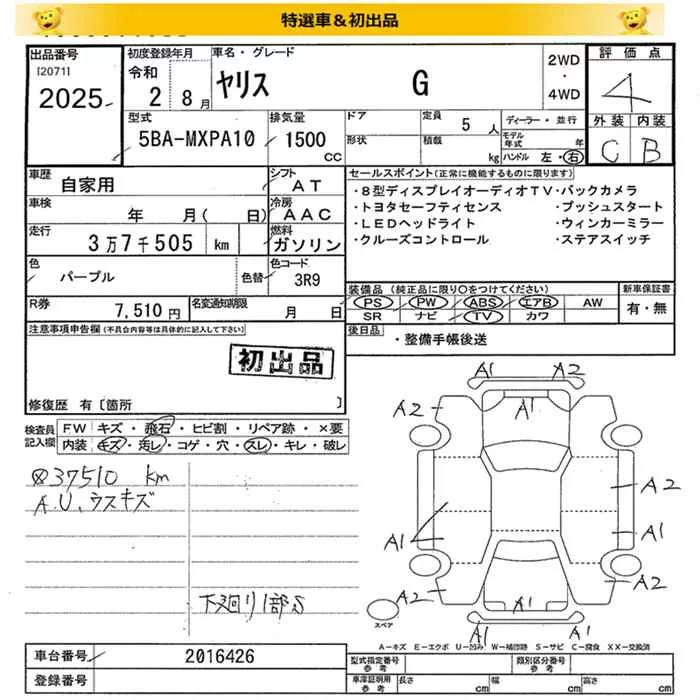 特選車&初出品
出品番号
[2071]
2025
初度登録年月
令和
2 8月
車名・グレード
ヤリス G
2WD
・
4WD
評価点
4
外装 内装
C B
型式
5BA-MXPA10
排気量
1500
CC
ドア
形状
定員
5人
積載
kg
ディーラー・並行
モデル年式 年
ハンドル 左・右
車歴
自家用
シフト
AT
車検
年 月( 日)
冷房
AAC
走行
3万7千505 km
燃料
ガソリン
色
パープル
色替
色コード
3R9
R券
7,510円
名変通知期限
月 日
セールスポイント(正常に機能するものに限ります)
・8型ディスプレイオーディオTV・バックカメラ
・トヨタセーフティセンス ・プッシュスタート
・LEDヘッドライト ・ウィンカーミラー
・クルーズコントロール ・ステアスイッチ
装備品(純正品に限り○をつけてください)
PS PW ABS エアB AW
SR ナビ TV カワ
新車保証書
有・無
後日品
・整備手帳後送
注意事項申告欄(不具合内容等は具体的に記入して下さい)
初出品
修復歴 有〔箇所 〕
検査員記入欄
FW キズ・飛石・ヒビ割・リペア跡・×要
内装 キズ・汚レ・コゲ・穴・スレ・キレ・破レ
37510 km
A.U.ウスキズ
下廻り1部S
A1 A2
A2 A1 A2
A2
A1 A1
A2 A2
A1
A1 A1
スペア
A-キズ E-エクボ U-凹み W-補修跡 S-サビ C-腐食 XX-交換済
車台番号
2016426
登録番号
型式指定番号
参考
類別区分番号
参考
車庫証明用
参考
長さ cm 幅 cm 高さ cm